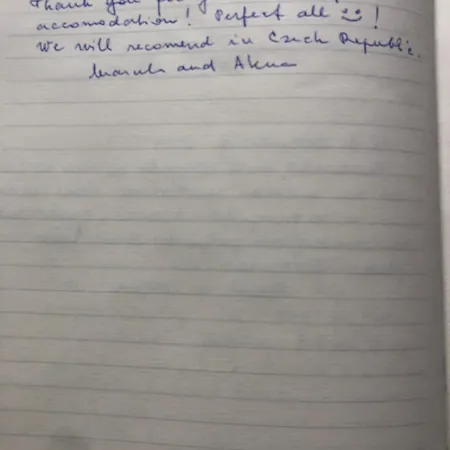 Thank you for
accomodation! Perfect all !
We will recomend in Czech Republic.
and